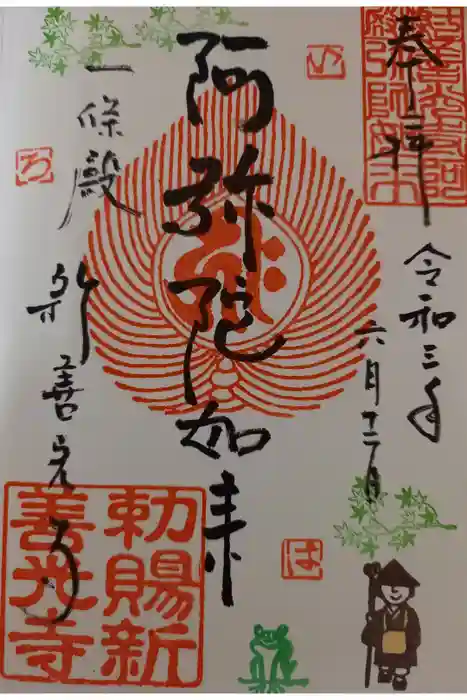 奉拝
令和三年
六月十二日
い
阿弥陀如来
は
一條殿
ろ
新善光寺
勅賜新
善光寺